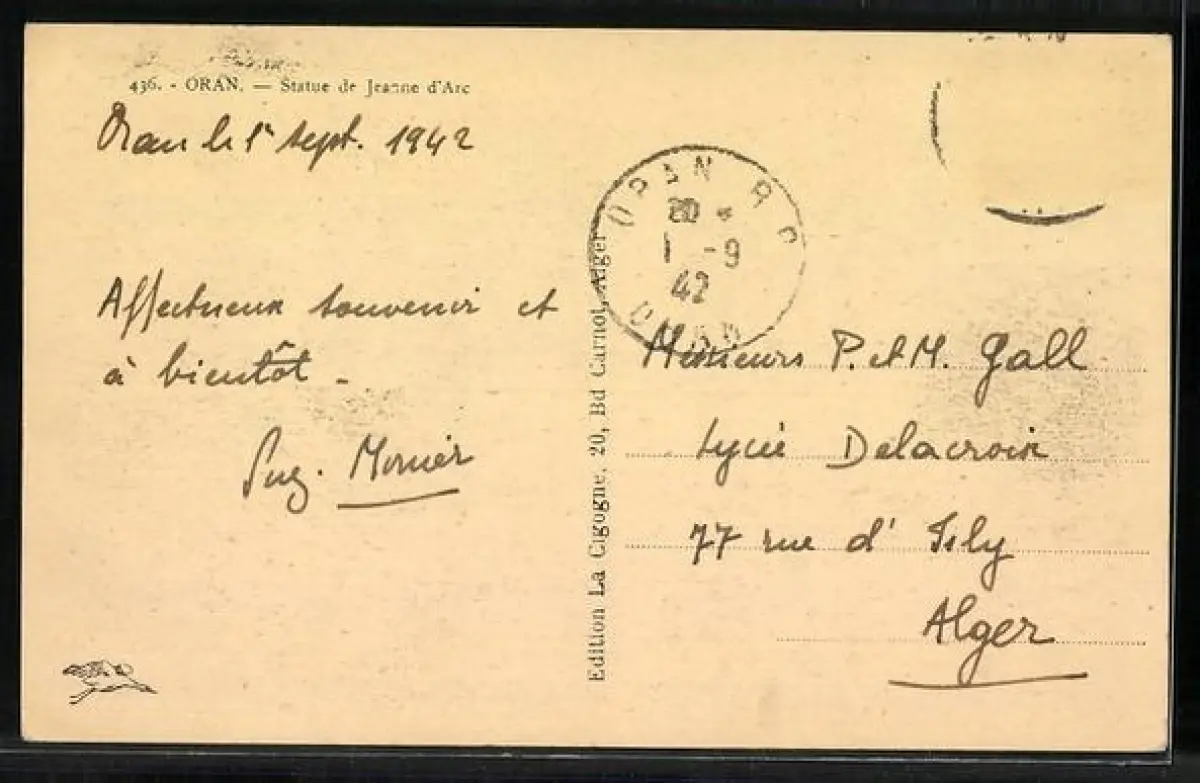 436. - ORAN. — Statue de Jeanne d'Arc
Oran le 1er sept. 1942
Affectueux souvenir et
à bientôt -
Monier
Edition La Cigogne, 20, Bd Carnot, Alger
ORAN R P
20 *
1 -9
42
ORAN
Messieurs P. et M. Gall
Lycée Delacroix
77 rue d' Isly
Alger